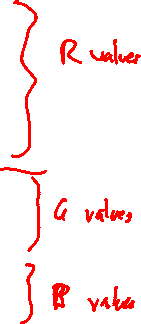 R values
G values
B value